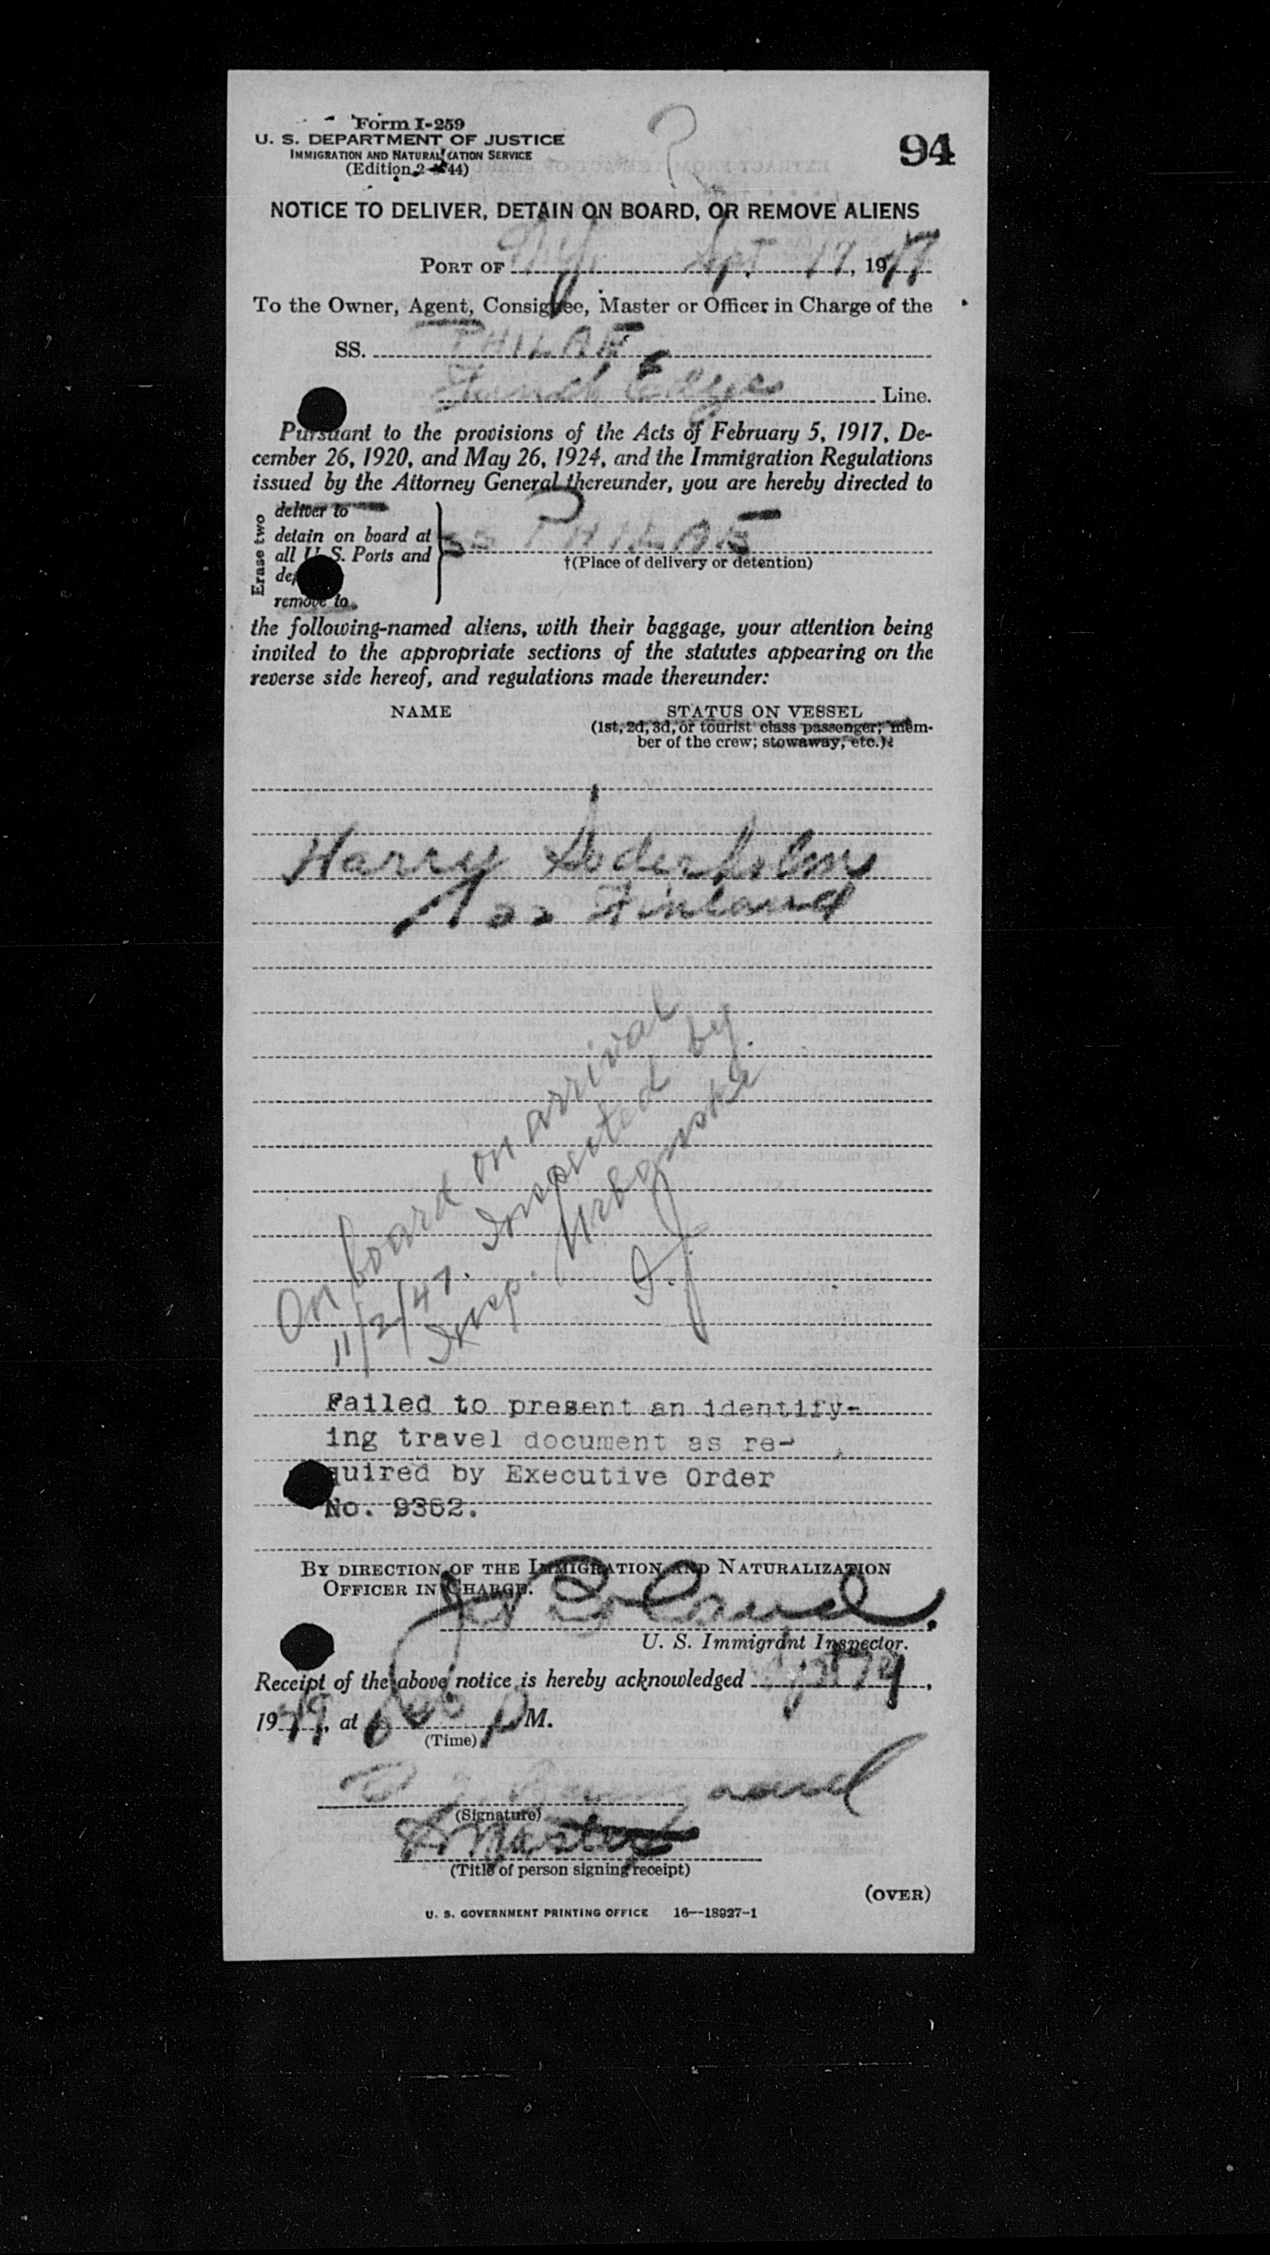 Form I-259
94
U. S. DEPARTMENT OF JUSTICE
IMMIGRATION AND NATURALIZATION SERVICE
(Edition 2-44)
NOTICE TO DELIVER, DETAIN ON BOARD, OR REMOVE ALIENS
PORT OF N.Y. Sept 17, 1947
To the Owner, Agent, Consignee, Master or Officer in Charge of the
SS. PHILAE
Funch Edye Line.
Pursuant to the provisions of the Acts of February 5, 1917, De-
cember 26, 1920, and May 26, 1924, and the Immigration Regulations
issued by the Attorney General thereunder, you are hereby directed to
Erase two
deliver to
detain on board at
all U. S. Ports and
remove to
SS PHILAE
†(Place of delivery or detention)
the following-named aliens, with their baggage, your attention being
invited to the appropriate sections of the statutes appearing on the
reverse side hereof, and regulations made thereunder:
NAME STATUS ON VESSEL
(1st, 2d, 3d, or tourist class passenger; mem-
ber of the crew; stowaway, etc.)
Harry Soderholm
22 Finland
On board on arrival
11/2/47. Inspected by
Insp. Urbanski
Failed to present an identify-
ing travel document as re-
quired by Executive Order
No. 9352.
BY DIRECTION OF THE IMMIGRATION AND NATURALIZATION
OFFICER IN CHARGE.
Boland
U. S. Immigrant Inspector.
Receipt of the above notice is hereby acknowledged
19 , at P M.
(Time)
(Signature)
Master
(Title of person signing receipt)
(OVER)
U. S. GOVERNMENT PRINTING OFFICE 16—18927-1